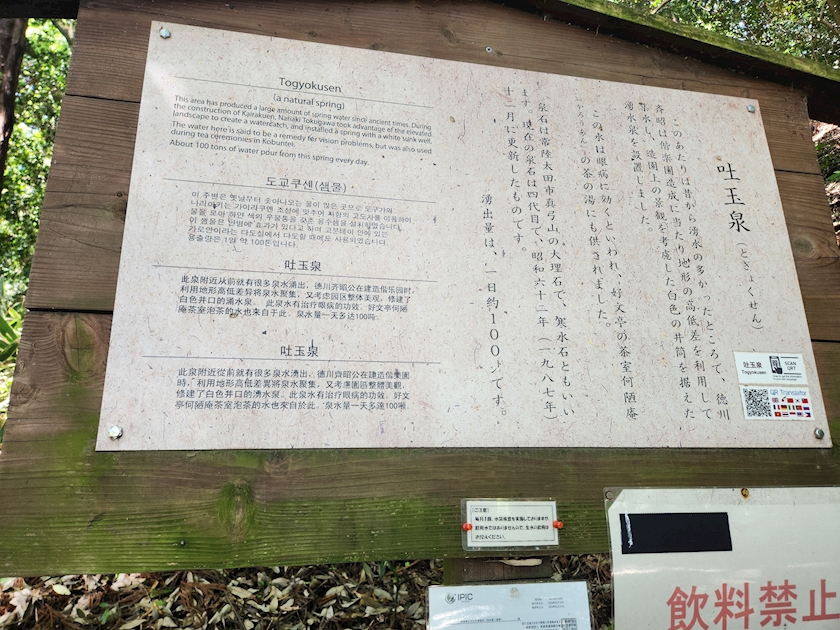 Togyokusen
(a natural spring)
This area has produced a large amount of spring water since ancient times. During
the construction of Kairakuen, Nariaki Tokugawa took advantage of the elevated
landscape to create a watercatch, and installed a spring with a white sunk well.
The water here is said to be a remedy for vision problems, but was also used
during tea ceremonies in Kobuntei.
About 100 tons of water pour from this spring every day.
도교쿠센(샘물)
이 주변은 옛날부터 솟아나오는 물이 많은 곳으로 도쿠가와
나리아키는 가이라쿠엔 조성에 맞추어 지형의 고도차를 이용하여
물을 모아 하얀 색의 우물통을 갖춘 용수샘을 설치하였습니다.
이 샘물은 눈병에 효과가 있다고 하며 고분테이 안에 있는
가로안이라는 다도실에서 다도할 때에도 사용되었습니다.
용출량은 1일 약 100톤입니다.
吐玉泉
此泉附近从前就有很多泉水涌出，德川齐昭公在建造偕乐园时，
利用地形高低差异将泉水聚集，又考虑园区整体美观，修建了
白色井口的涌水泉。此泉水有治疗眼病的功效，好文亭何陋
庵茶室泡茶的水也来自于此，泉水量一天多达100吨。
吐玉泉
此泉附近從前就有很多泉水湧出，德川齊昭公在建造偕樂園
時，利用地形高低差異將泉水聚集，又考慮園區整體美觀，
修建了白色井口的湧水泉。此泉水有治疗眼病的功效，好文
亭何陋庵茶室泡茶的水也來自於此，泉水量一天多達100噸。
吐玉泉（とぎょくせん）
このあたりは昔から湧水の多かったところで、徳川
斉昭は偕楽園造成に当たり地形の高低差を利用して
集水し、造園上の景観を考慮した白色の井筒を据えた
湧水泉を設置しました。
この水は眼病に効くといわれ、好文亭の茶室何陋庵
（かろうあん）の茶の湯にも供されました。
泉石は常陸太田市真弓山の大理石で、寒水石ともいい
ます。現在の泉石は四代目で、昭和六十二年（一九八七年）
十二月に更新したものです。
湧出量は、一日約１００ｔです。
吐玉泉
Togyokusen
SCAN
QR!
QR Translator
【ご注意】
毎月１回、水質検査を実施しておりますが、
飲用水ではありませんので、生水の飲用は
お控えください。
IPIC
飲料禁止